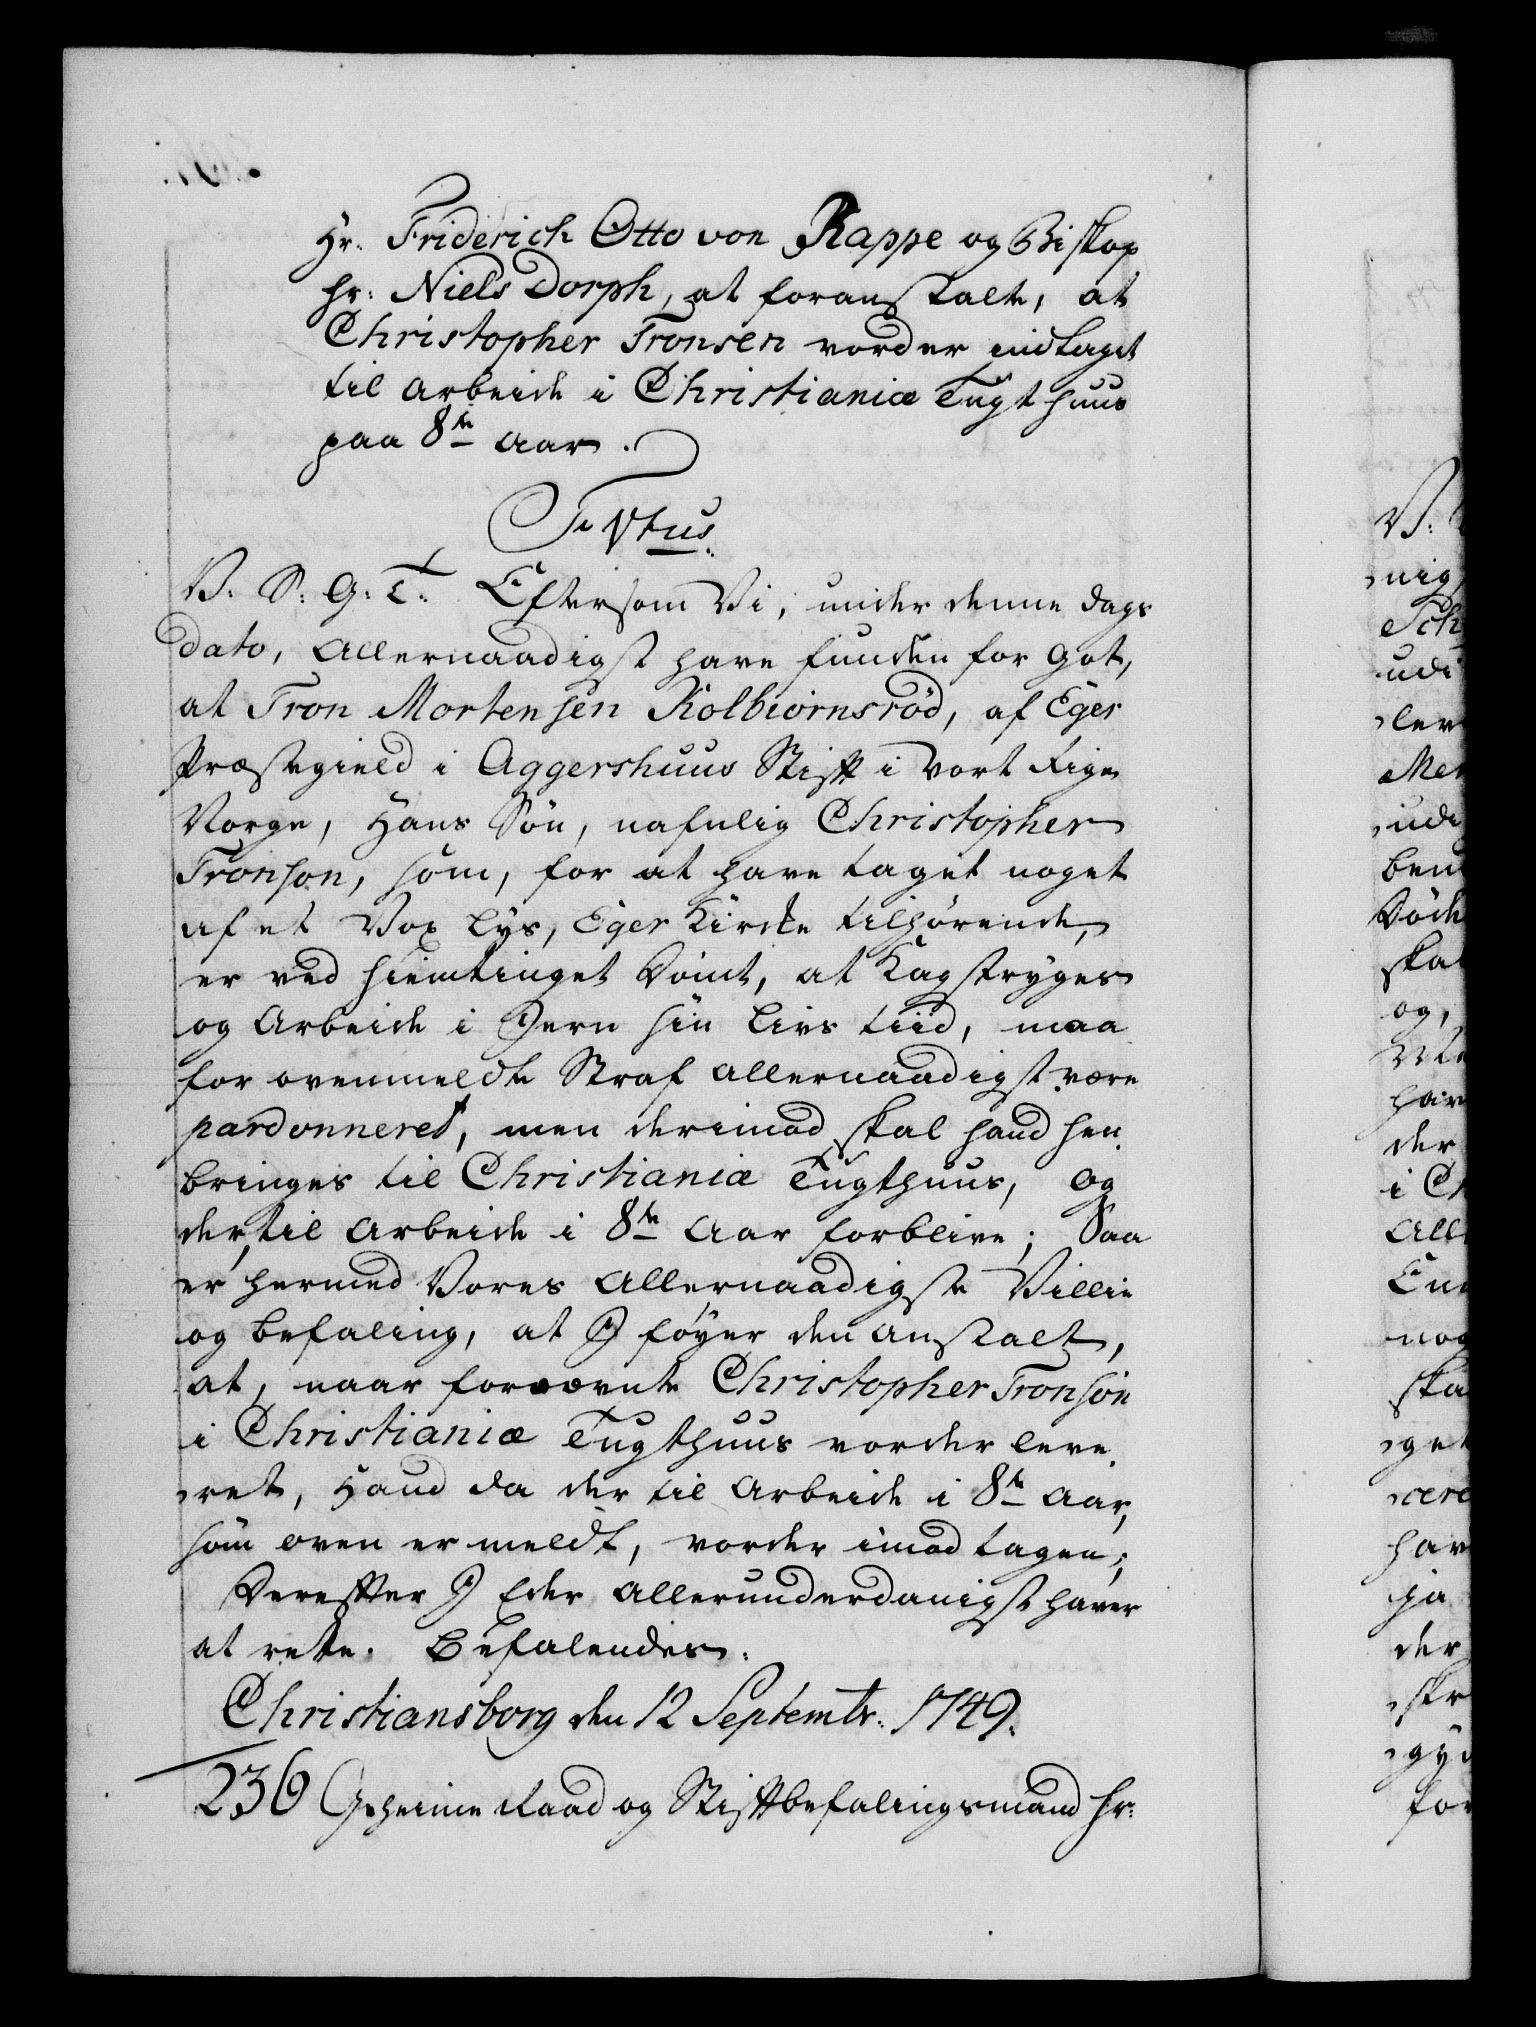 Hr. Friderich Otto von Rappe og Biskop
Hr: Niels Dorph, at foranstalte, at
Christopher Tronsen vorder indtaget
til Arbeide i Christianiæ Tugthuus
paa 8te Aar.
Textus.
V. S: G: T. Eftersom Vi, under denne Dags
dato, Allernaadigst have funden for Got,
at Tron Mortensen Kolbiørnsrød, af Eger
Præstegield i Aggershuus Stift i Vort Rige
Norge, Hans Søn, nafnlig Christopher
Tronson, som, for at have taget noget
af et Vox Lys, Eger Kircke tilhørende,
er ved Hiemtinget Dømt, at Kagstryges
og Arbeide i Jern sin Livs tiid, maa
for ovenmeldte Straf Allernaadigst være
pardonneret, men derimod skal hand hen
bringes til Christianiæ Tugthuus, og
der, til Arbeide i 8te Aar forblive; Saa
er hermed Vores Allernaadigste Villie
og Befaling, at I føyer den Anstalt,
at, naar forrævnte Christopher Tronson
i Christianiæ Tugthuus vorder leve
ret, Hand da der til Arbeide i 8te Aar,
som oven er meldt, vorder imodtagen;
Derefter I Eder Allerunderdanigst haver
at rette. Befalendes.
Christiansborg den 12 Septembr. 1749.
236 Geheime Raad og Stiftbefalingsmand Hr: